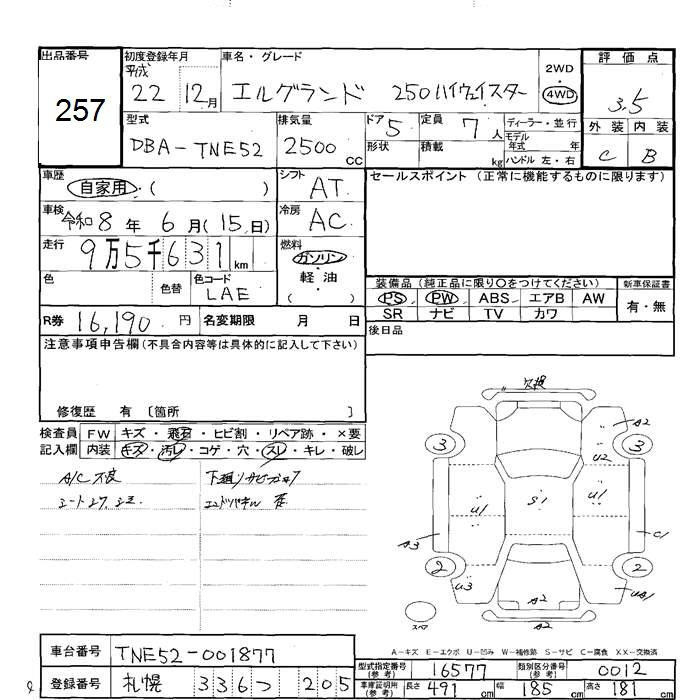 出品番号 初度登録年月 車名・グレード 評価点
257
平成 22 12月 エルグランド 250ハイウェイスター 2WD 4WD 3.5
型式 排気量 ドア 5 定員 7人 ディーラー・並行 外装 内装
DBA-TNE52 2500cc 形状 積載 kg モデル年式 年 ハンドル 左・右 C B
車歴 自家用・( ) シフト AT セールスポイント (正常に機能するものに限ります)
車検 令和8年6月(15日) 冷房 AC
走行 9万5千631km 燃料 ガソリン・軽油 ( )
色 色替 色コード LAE
装備品(純正品に限り○をつけてください) 新車保証書
PS PW ABS エアB AW 有・無
SR ナビ TV カワ
R券 16,190円 名変期限 月 日 後日品
注意事項申告欄(不具合内容等は具体的に記入して下さい)
修復歴 有 〔箇所 〕
検査員 FW キズ・飛石・ヒビ割・リペア跡・×要
記入欄 内装 キズ・汚レ・コゲ・穴・スレ・キレ・破レ
A/C不良 下廻りサビ
シート
欠損
3 A2 3
U2
U1 S1 U1
A3 C1
2 U3 2
A2
スペア
A-キズ E-エクボ U-凹み W-補修跡 S-サビ C-腐食 XX-交換済
車台番号 TNE52-001877
登録番号 札幌 336つ 205
型式指定番号(参考) 16577 類別区分番号(参考) 0012
車庫証明用(参考) 長さ 491cm 幅 185cm 高さ 181cm